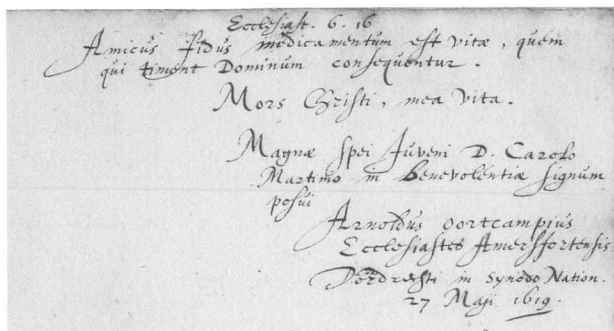 Ecclesiast. 6. 16
Amicus fidus medicamentum est vitæ, quem
qui timent Dominum consequentur.
Mors Christi, mea vita.
Magnæ spei Juveni D. Carolo
Martino in benevolentiæ signum
posui
Arnoldus oortcampius
Ecclesiastes Amersfortensis
Dordrechti in Synodo Nation.
27 Maji 1619.